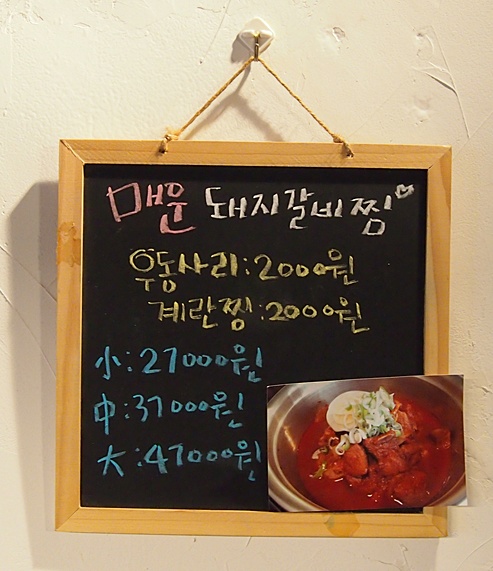 매운 돼지갈비찜
우동사리:2000원
계란찜:2000원
小:27000원
中:37000원
大:47000원